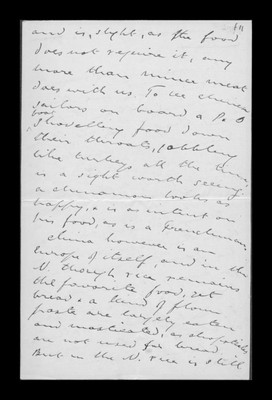 and is, slight, as the food
does not require it, any
more than mince meat
does with us. To see Chinese
sailors on board a P & O
shovelling food down
their throats, gobbling
like turkeys all the time
is a sight worth seeing.
a chinaman looks as
happy, & is as intent on
his food, as is a Frenchman.
China however is an
Europe of itself, and in the
N. though rice remains
the favorite food, yet
bread & a kind of flour
paste are largely eaten
and masticated, as chopsticks
are not used for bread.
But in the N. rice is still